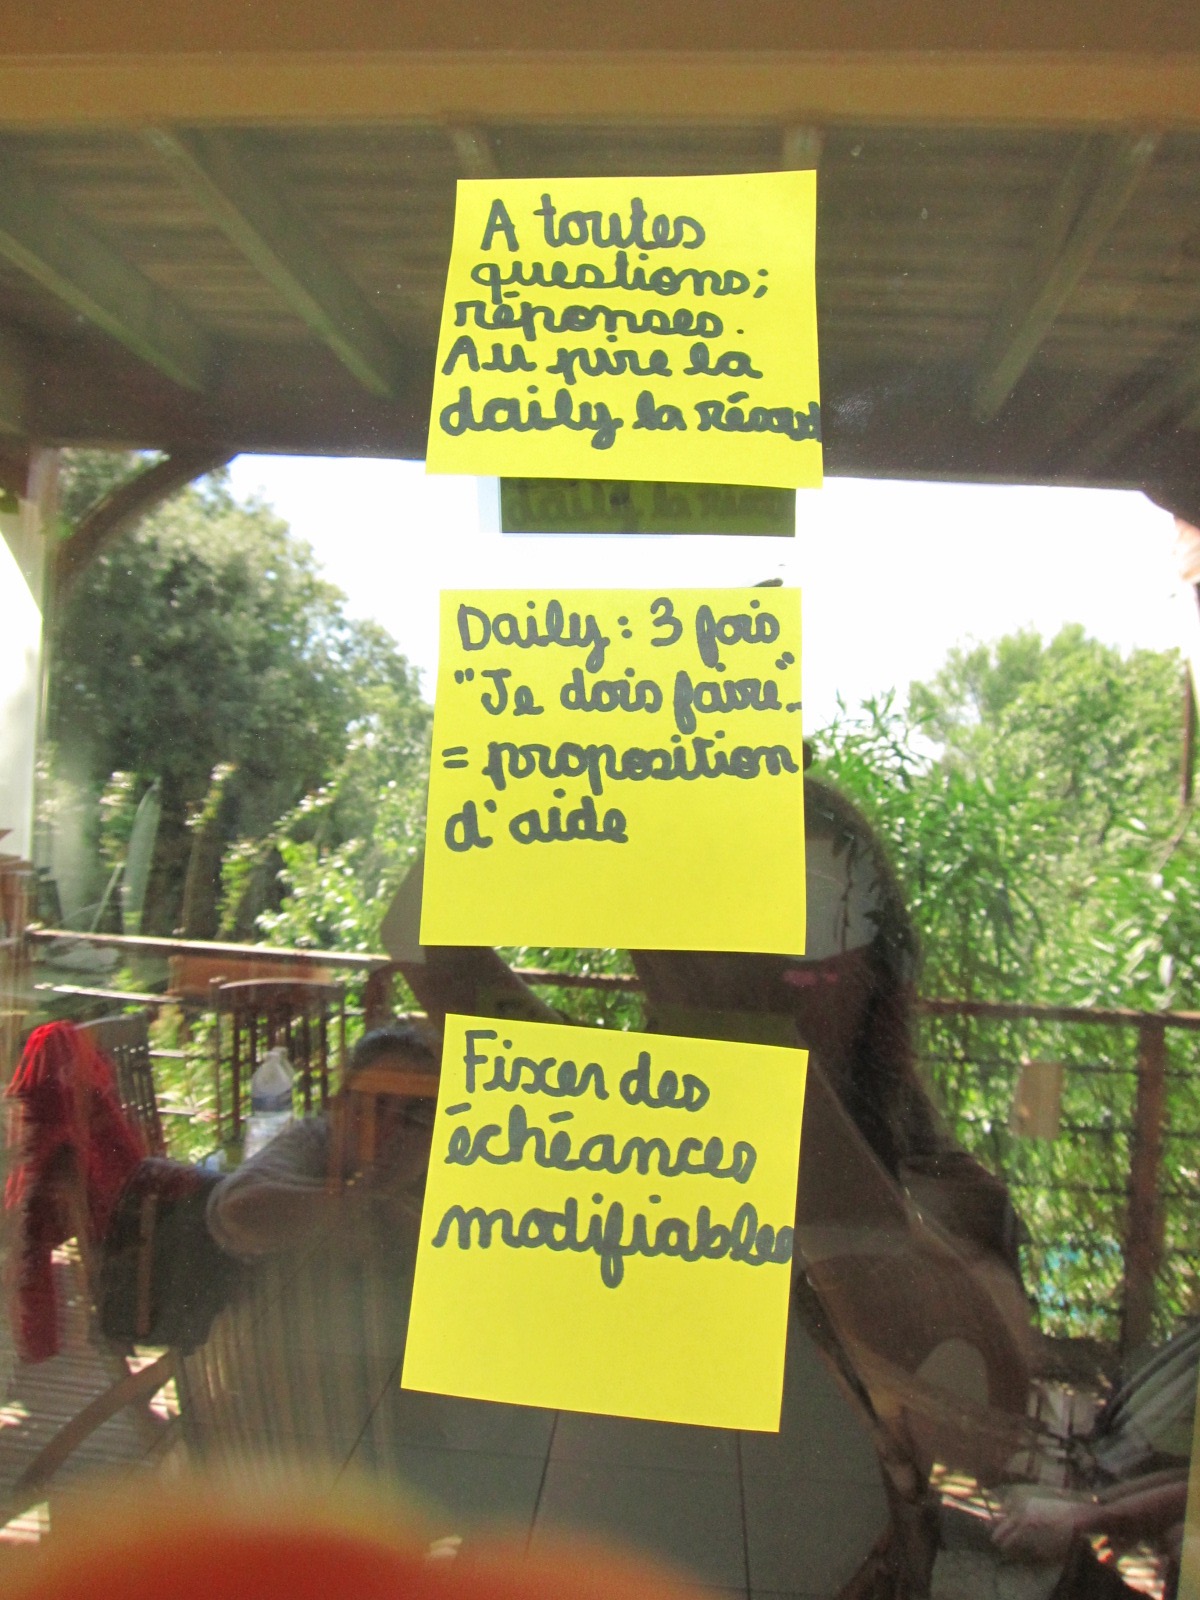 A toutes
questions;
réponses.
Au pire la
daily la résout
Daily : 3 fois
"Je dois faire.."
= proposition
d'aide
Fixer des
échéances
modifiables